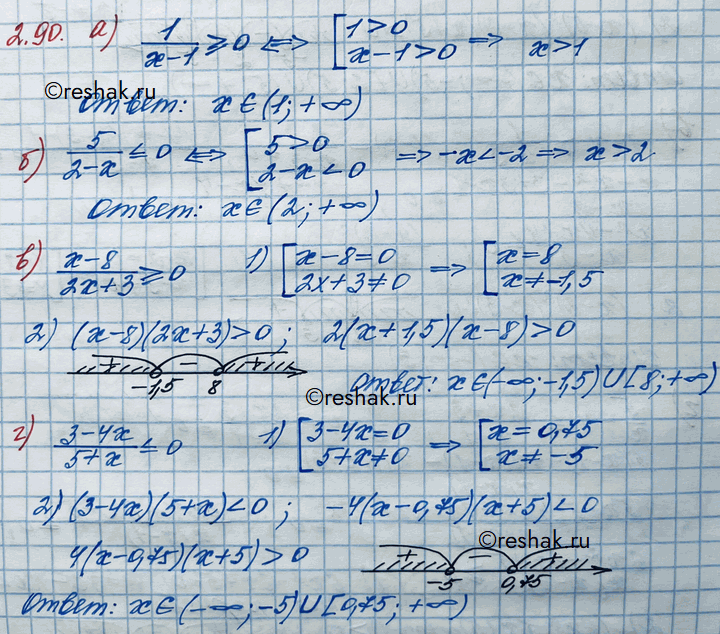 2.90. а) 1/(x-1) ≥ 0 ⇔ [1>0 x-1>0 ⇒ x>1
©reshak.ru
Ответ: x∈(1;+∞)
б) 5/(2-x) ≤ 0 ⇔ [5>0 2-x<0 ⇒ -x<-2 ⇒ x>2
Ответ: x∈(2;+∞)
в) (x-8)/(2x+3) ≥ 0 1) [x-8=0 2x+3≠0 ⇒ [x=8 x≠-1,5
2) (x-8)(2x+3)>0; 2(x+1,5)(x-8)>0
+ - +
-1,5 8
Ответ: x∈(-∞;-1,5)∪[8;+∞)
©reshak.ru
г) (3-4x)/(5+x) ≤ 0 1) [3-4x=0 5+x≠0 ⇒ [x=0,75 x≠-5
2) (3-4x)(5+x)<0; -4(x-0,75)(x+5)<0
©reshak.ru
4(x-0,75)(x+5)>0
+ - +
-5 0,75
Ответ: x∈(-∞;-5)∪[0,75;+∞)